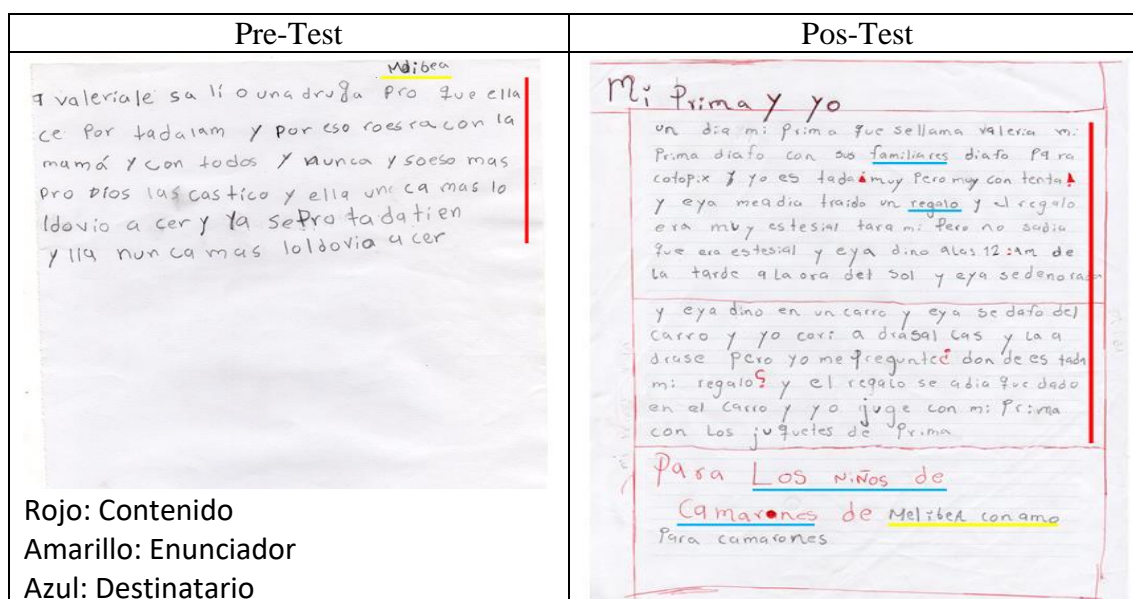 Pre-Test
Pos-Test
Melibea
a valeriale sa lí o una druja Pro que ella
ce Por tadalam y por eso roesra con la
mamá y con todos y nunca y soeso mas
pro Dios las castico y ella unca mas lo
ldovio a cer y ya sePro tadatien
y lla nun ca mas loldovia a cer
Rojo: Contenido
Amarillo: Enunciador
Azul: Destinatario
Mi Prima y yo
un dia mi prima que sellama valeria mi
Prima diafo con sus familiares diafo Para
cotopix y yo es tada muy Pero muy con tenta
y eya meadia traido un regalo y el regalo
era muy estesial tara mi Pero no sadia
que era estesial y eya dino alas 12:am de
la tarde a la ora del sol y eya sedenorada
y eya dino en un carro y eya se dafo del
carro y yo cori a drasal las y la a
drase pero yo me pregunte¿ don de es tada
mi regalo? y el regalo se adia que dado
en el carro y yo juge con mi Prima
con Los juguetes de Prima
Para Los niños de
Camarones de Melibea con amo
Para camarones